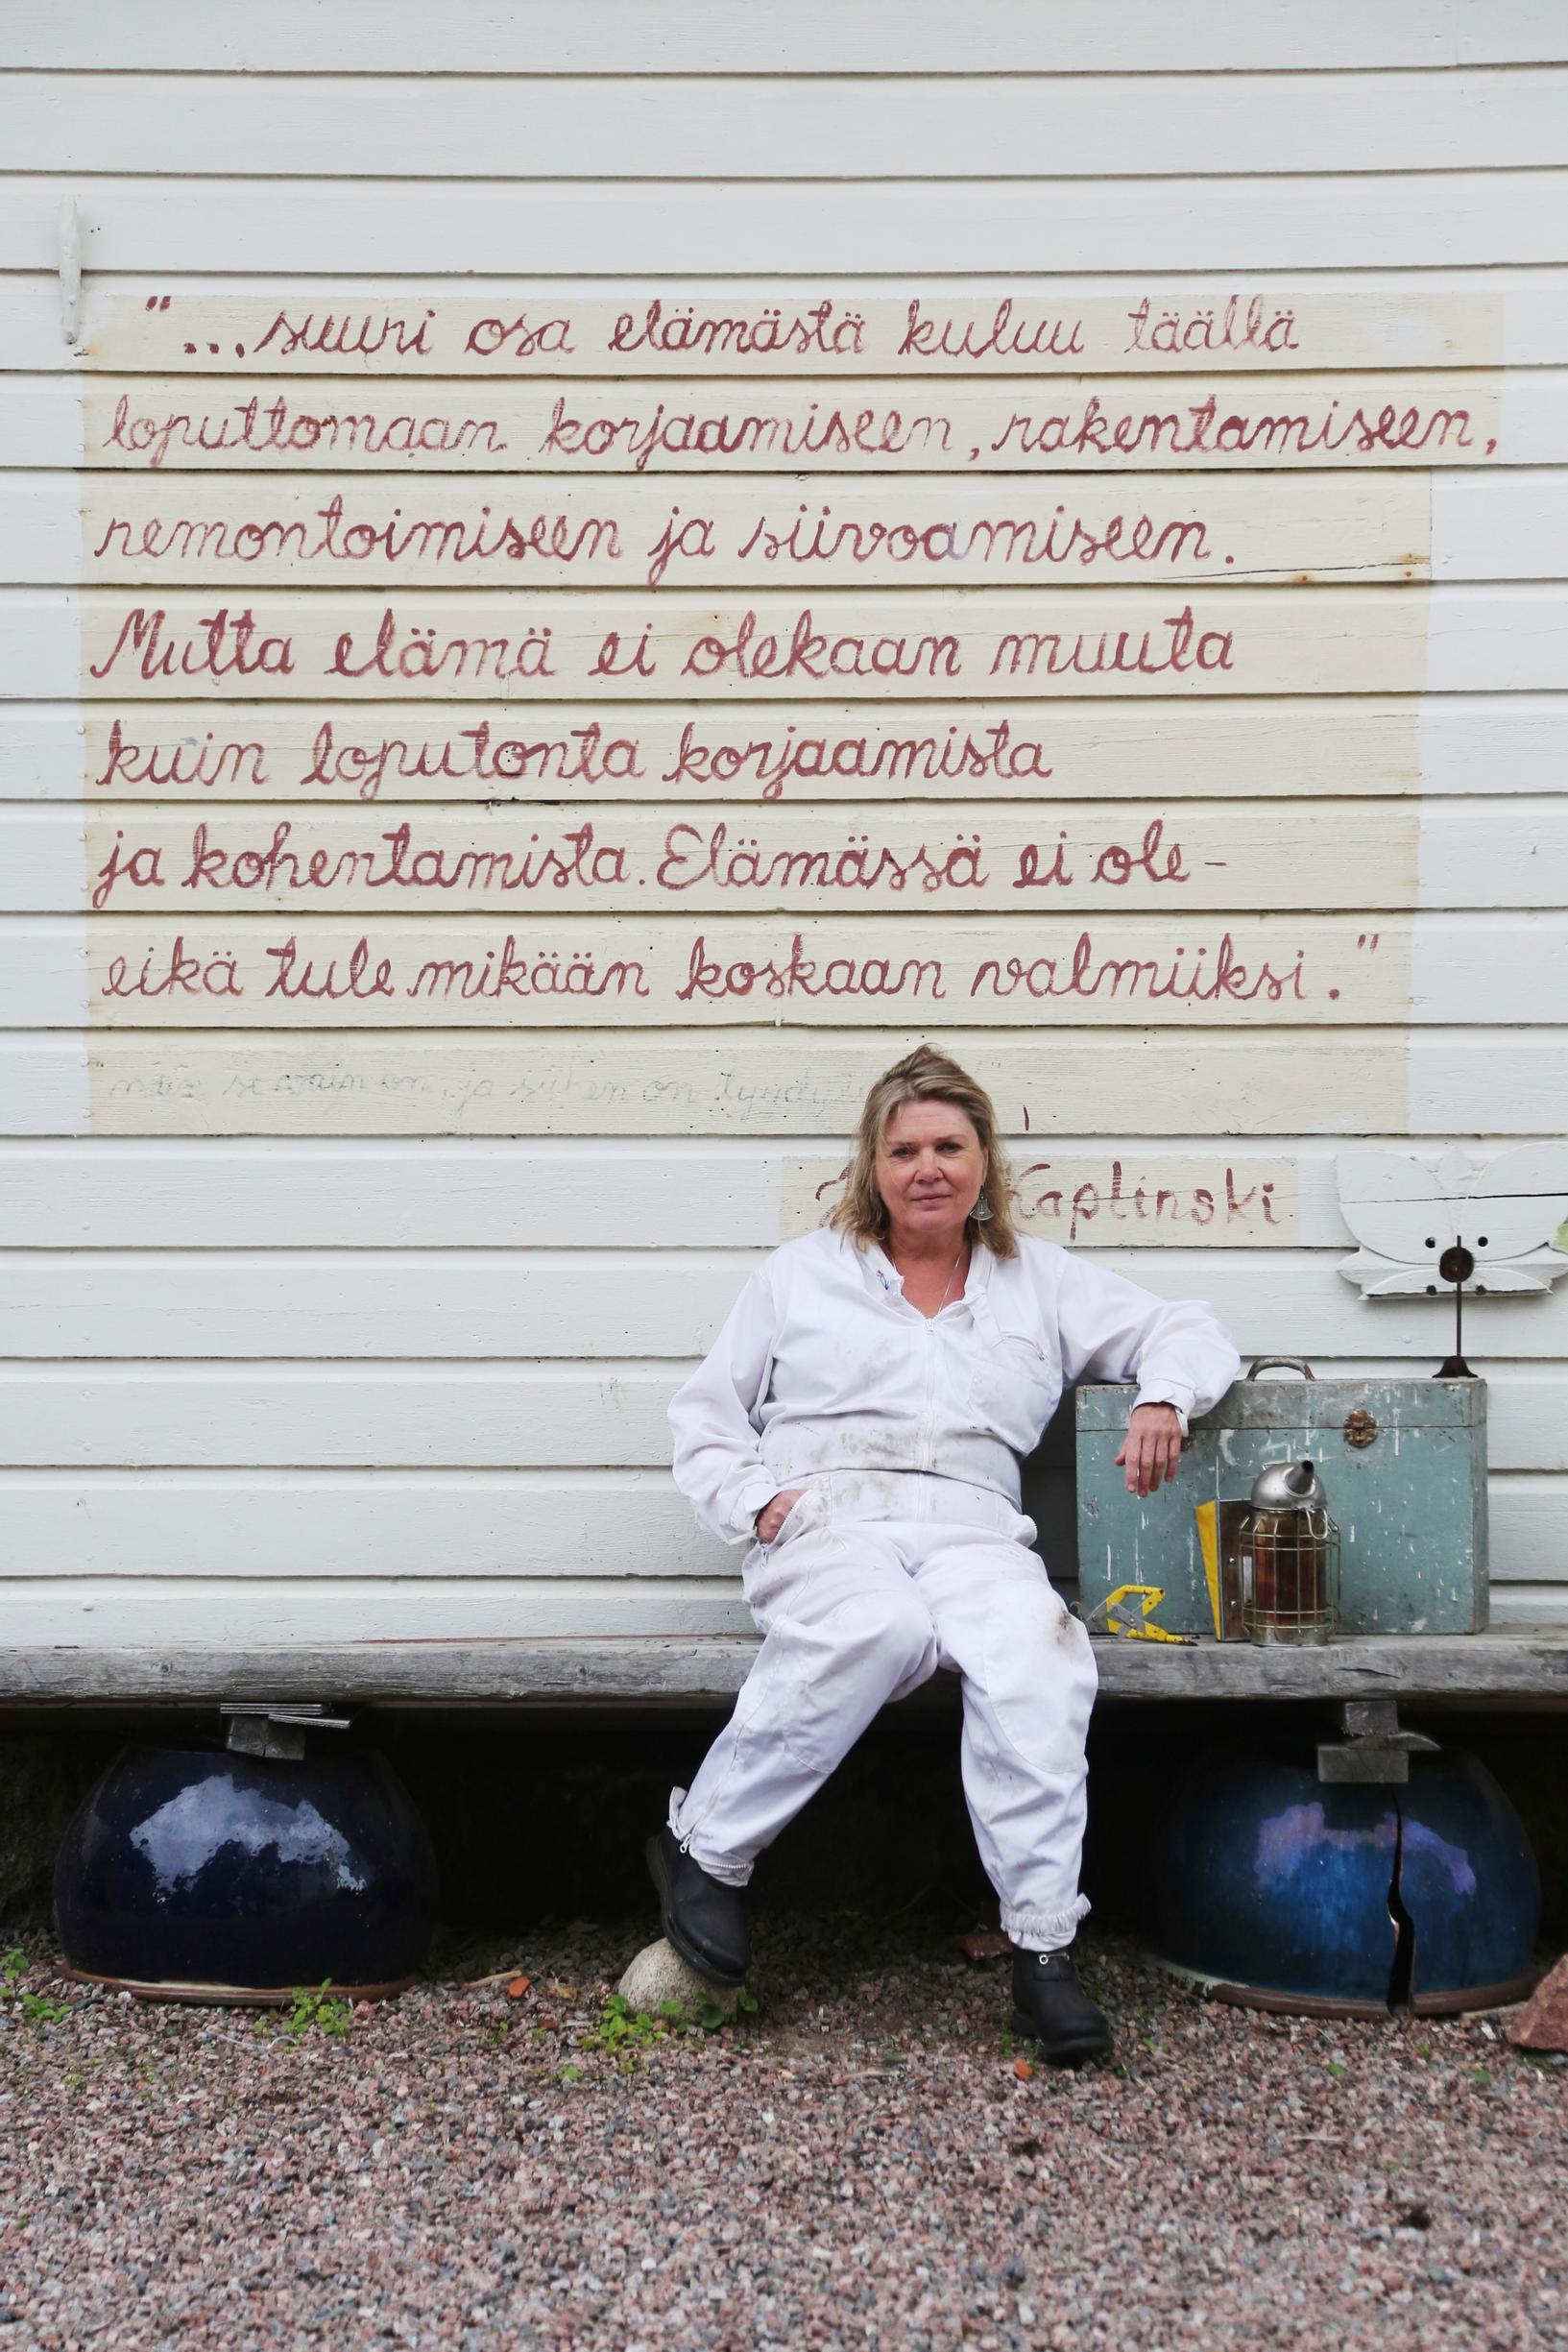 "...suuri osa elämästä kuluu täällä
loputtomaan korjaamiseen, rakentamiseen,
remontoimiseen ja siivoamiseen.
Mutta elämä ei olekaan muuta
kuin loputonta korjaamista
ja kohentamista. Elämässä ei ole-
eikä tule mikään koskaan valmiiksi."
on, ja siihen on
Kaplinski